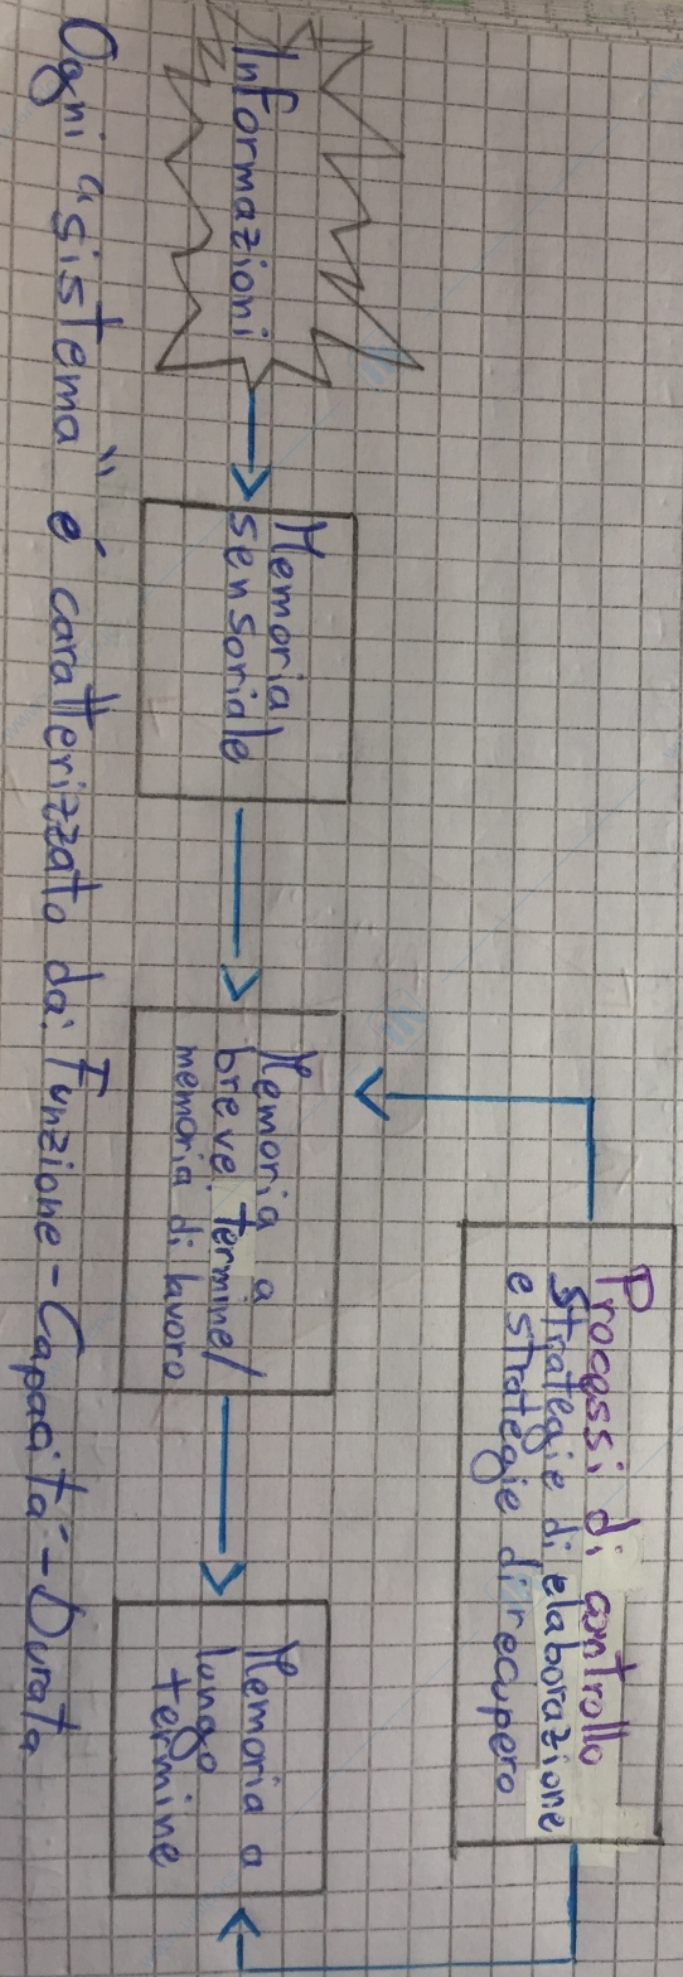 Processi di controllo
strategie di elaborazione
e strategie di recupero
Informazioni
Memoria
sensoriale
Memoria a
breve termine/
memoria di lavoro
Memoria a
lungo
termine
Ogni "sistema" é caratterizzato da: Funzione - Capacitá - Durata